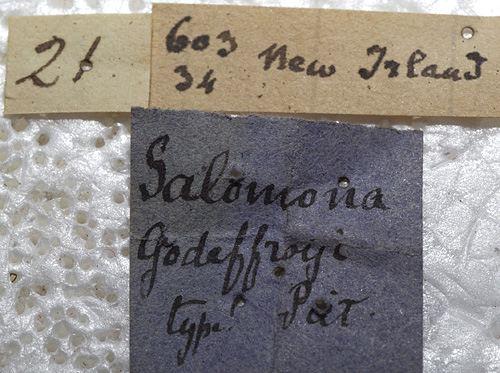 21
603 New Irland
34
Salomona
Godeffroyi
type! Pict.